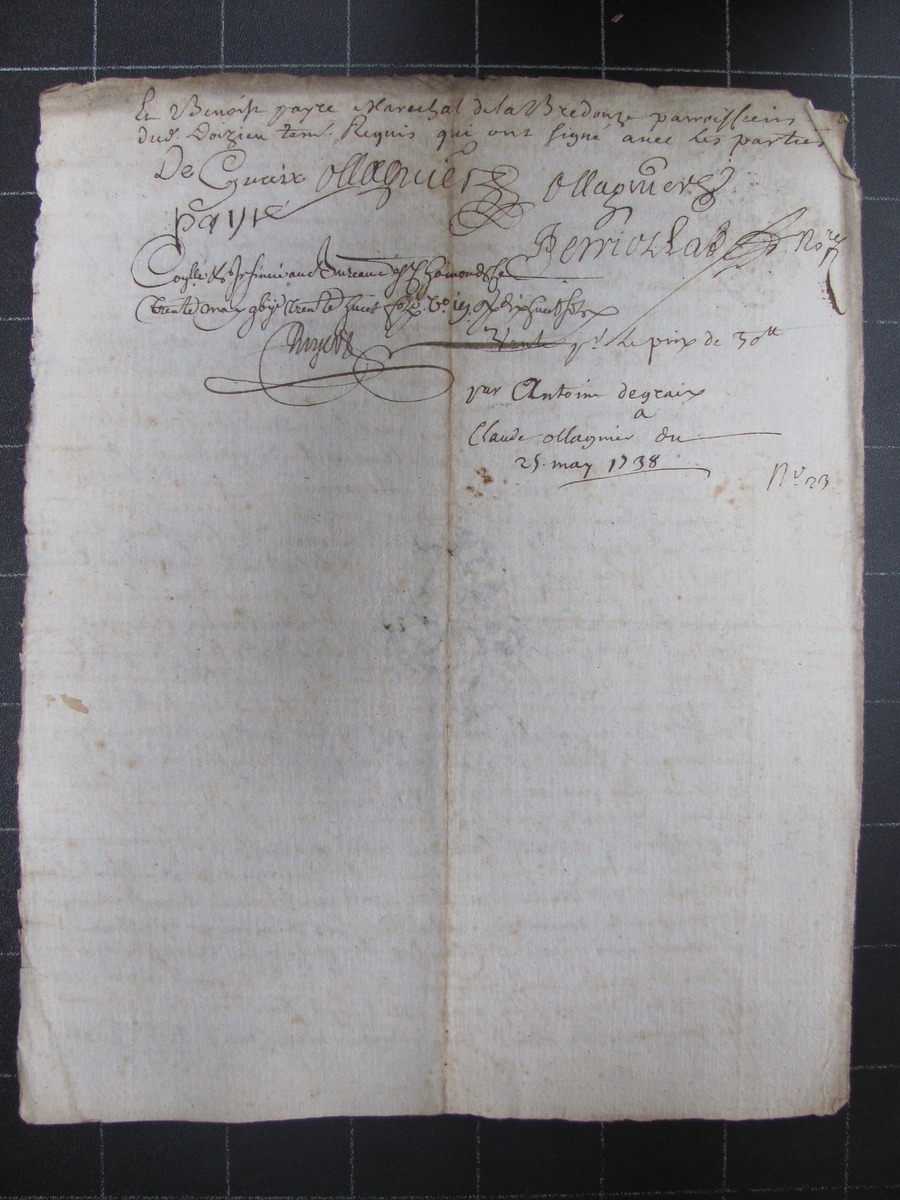 Et Benoist payre Marechal de la Bredouze parroissiens
dud. Doizieu tem. Requis qui ont signé avec les parties
De Graix ollagnier ollagnier
payre
Perriollat Nore
au Bureau de St Chamond le
trente may trente huict
Vente pr. le prix de 30tt
par Antoine degraix
a
Claude ollagnier du
25. may 1738
No. 23